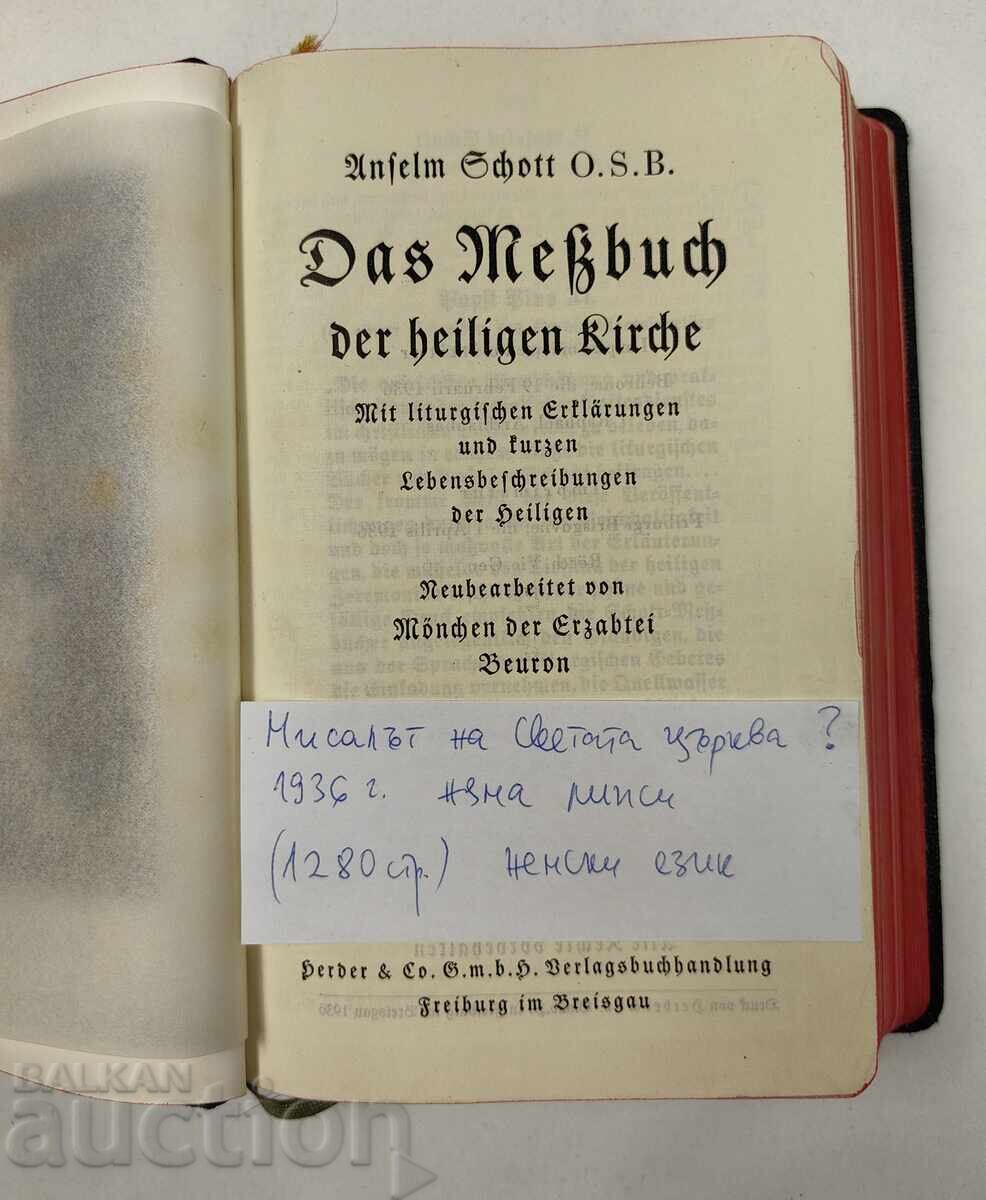 Anselm Schott O.S.B.
Das Meßbuch
der heiligen Kirche
Mit liturgischen Erklärungen
und kurzen
Lebensbeschreibungen
der Heiligen
Neubearbeitet von
Mönchen der Erzabtei
Beuron
Мисалът на Светата църква ?
1936 г. няма липси
(1280 стр.) женски език
Herder & Co. G.m.b.H. Verlagsbuchhandlung
Freiburg im Breisgau
BALKAN
auction